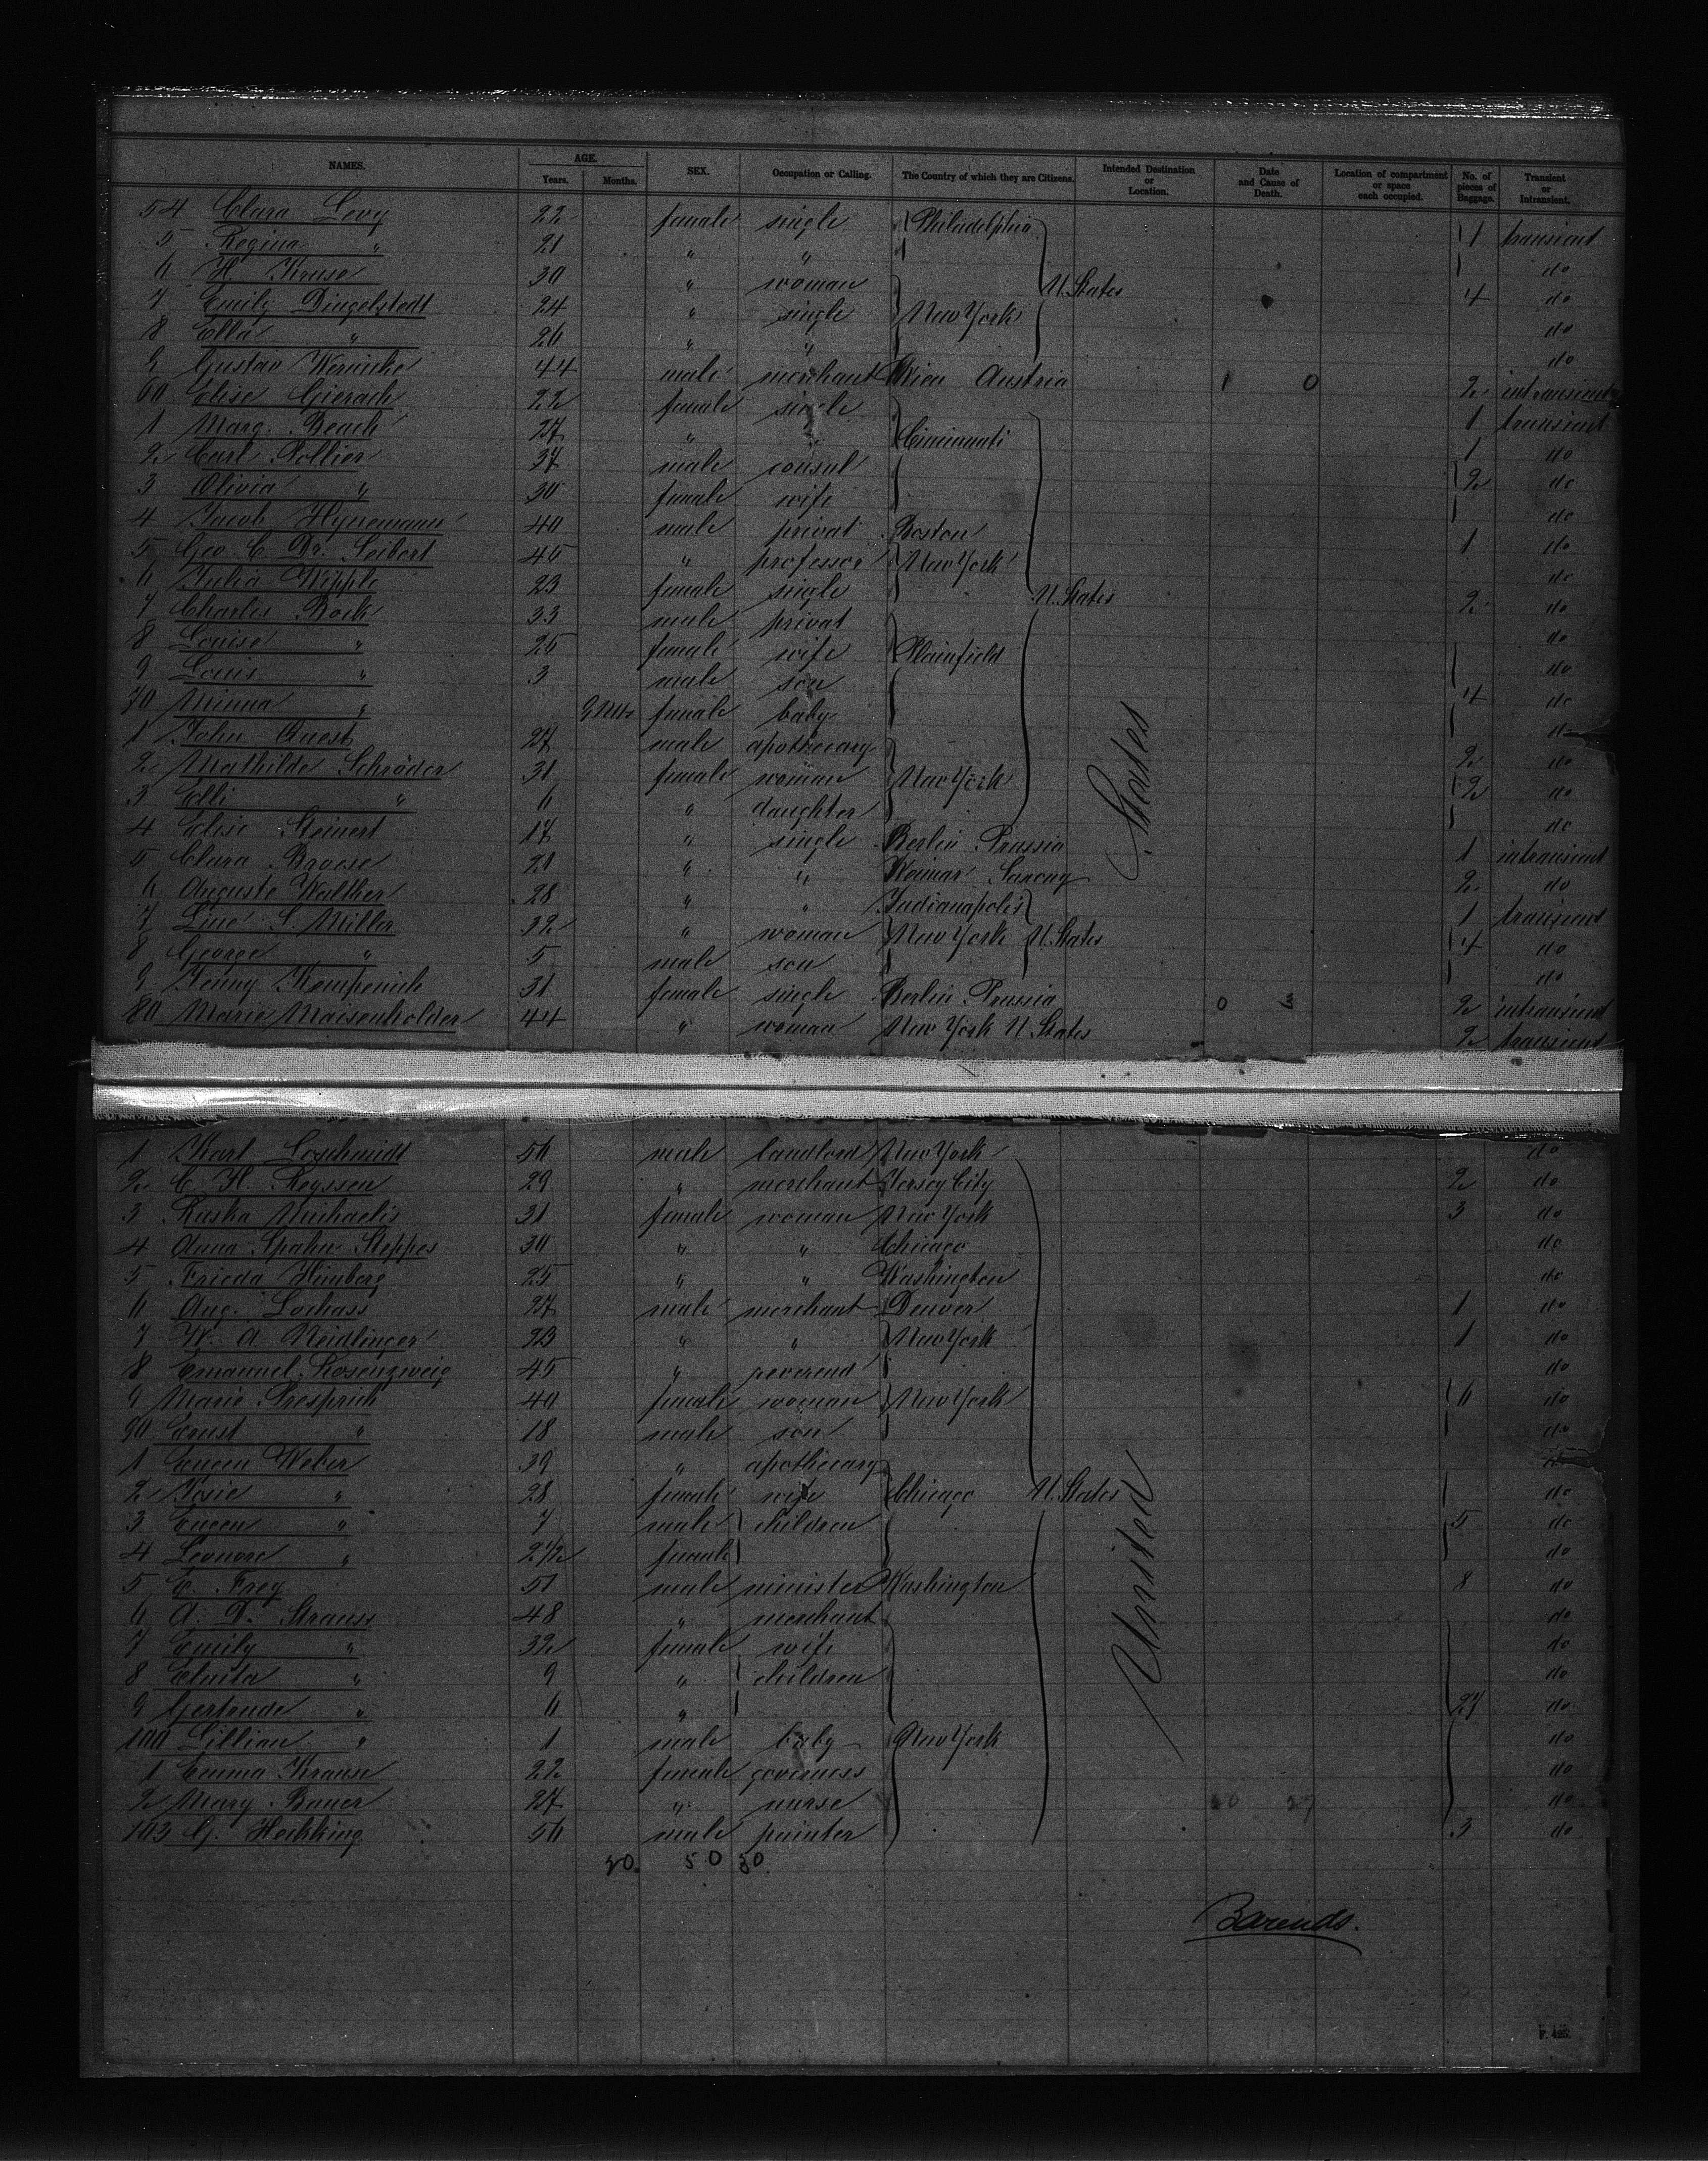 NAMES. AGE. Years. Months. SEX. Occupation or Calling. The Country of which they are Citizens. Intended Destination or Location. Date and Cause of Death. Location of compartment or space each occupied. No. of pieces of Baggage. Transient or Intransient.
54 Clara Levy 22 female single Philadelphia 1 transient
5 Regina " 21 " " do
6 H. Kruse 30 " woman U. States 4 do
7 Emily Dingelstedt 24 " single New York do
8 Ella " 26 " " do
9 Gustav Wernicke 44 male merchant Wien Austria 1 0 2 intransient
60 Elise Gierach 22 female single 1 transient
1 Marg. Beach 27 " " Cincinnati 1 do
2 Carl Pollier 37 male consul 2 do
3 Olivia " 30 female wife do
4 Jacob Hynemann 40 male privat Boston 1 do
5 Geo. C. Dr. Seibert 45 " professor New York do
6 Julia Wipple 23 female single U. States 2 do
7 Charles Bock 33 male privat do
8 Louise " 25 female wife Plainfield do
9 Louis " 3 male son 4 do
70 Minna " female baby do
1 John Quest 27 male apothecary 2 do
2 Mathilde Schröder 31 female woman New York 2 do
3 Elli " 6 " daughter do
4 Elise Steinert 17 " single Berlin Prussia 1 intransient
5 Clara Broese 21 " " Weimar Saxony 2 do
6 Auguste Walther 28 " " Indianapolis 1 transient
7 Line S. Miller 32 " woman New York U. States 4 do
8 George " 5 male son do
9 Jenny Kempenich 31 female single Berlin Prussia 0 2 intransient
80 Marie Maisenholder 44 " woman New York U. States 2 transient
1 Karl Loschmidt 56 male landlord New York do
2 C. H. Reyssen 29 " merchant Jersey City 2 do
3 Raska Michaelis 31 female woman New York 3 do
4 Anna Spahn Steppes 30 " " Chicago do
5 Frieda Himberg 25 " " Washington do
6 Aug. Lochass 27 male merchant Denver 1 do
7 W. A. Neidlinger 23 " " New York 1 do
8 Emanuel Rosenzweig 45 " reverend do
9 Marie Presprich 40 female woman New York 6 do
90 Ernst " 18 male son do
1 Eugen Weber 39 " apothecary do
2 Josie " 28 female wife Chicago U. States do
3 Eugen " 7 male children 5 do
4 Leonore " 2 1/2 female do
5 E. Frey 51 male minister Washington 8 do
6 A. D. Strauss 48 " merchant do
7 Emily " 32 female wife do
8 " 9 " children do
9 Gertrude " 6 " 27 do
100 Lillian " 1 male baby New York do
1 Emma Krause 22 female governess do
2 Mary Bauer 27 " nurse do
103 G. Heikking 56 male painter 3 do
United States
50 30
Barends.
F. 425.